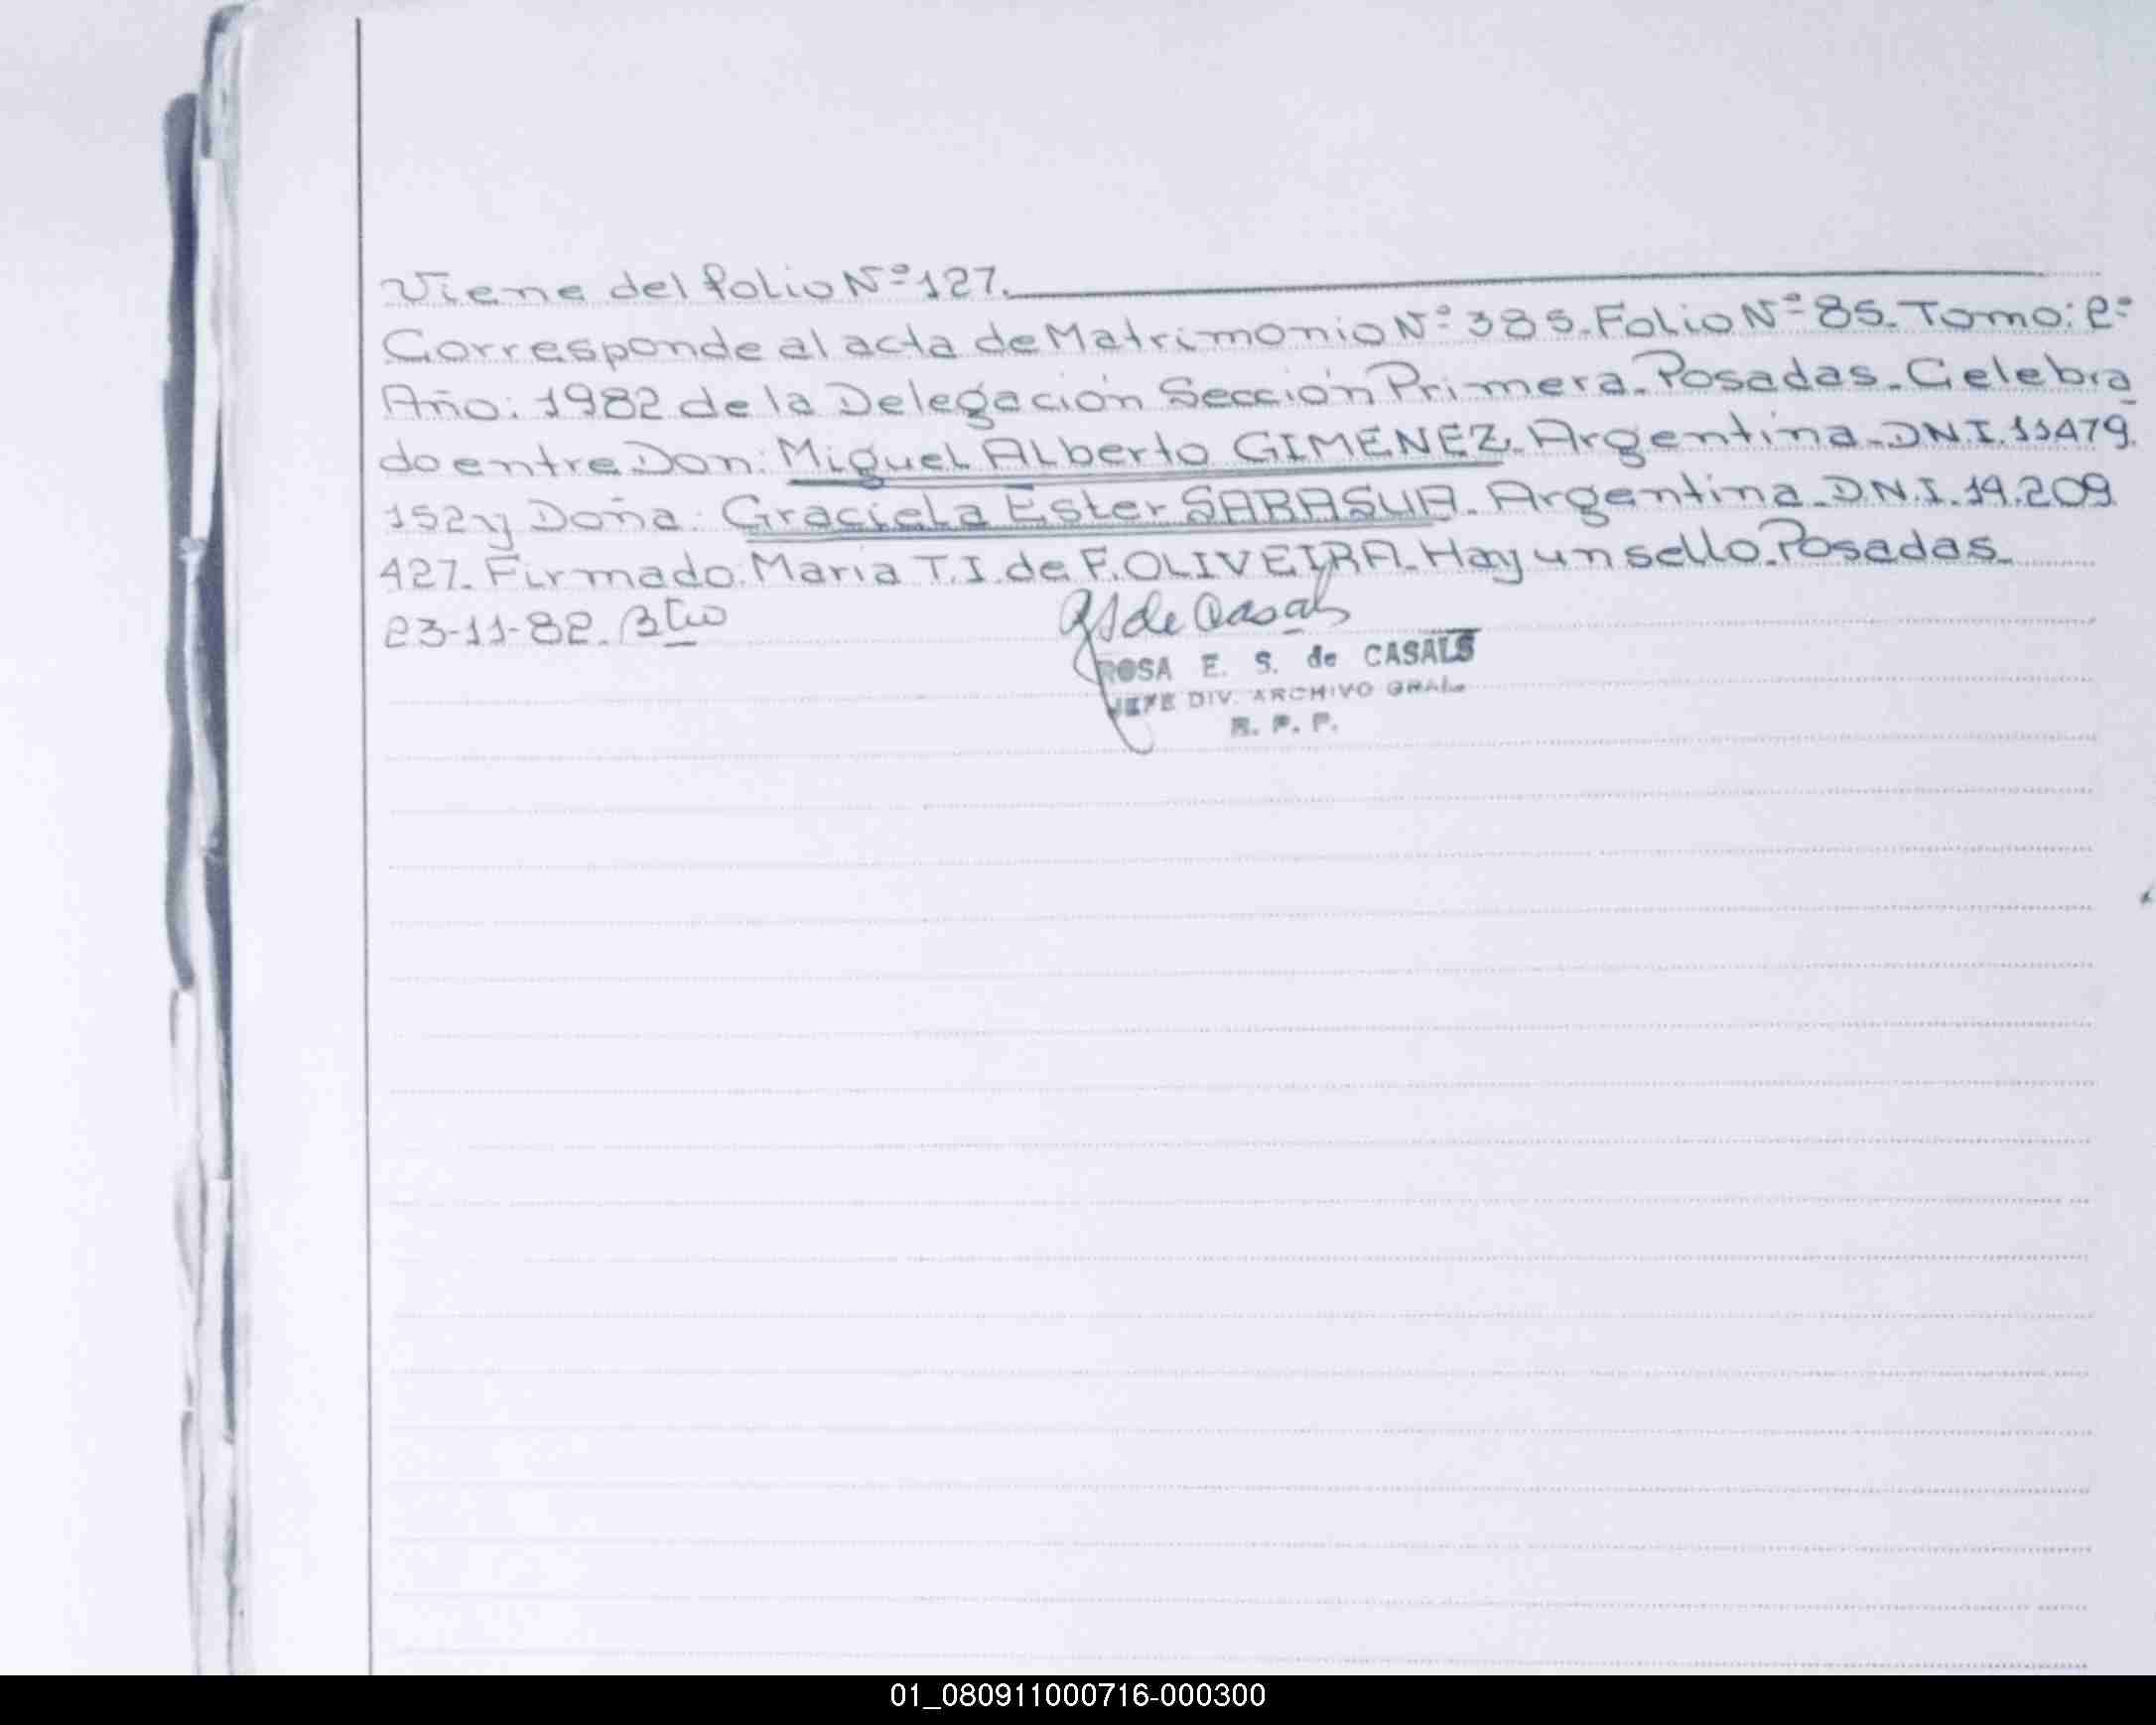 Viene del folio Nº 127.
Corresponde al acta de Matrimonio Nº 385. Folio Nº 85. Tomo: 2º
Año: 1982 de la Delegación Sección Primera. Posadas. Celebra
do entre Don: Miguel Alberto GIMENEZ. Argentina. DNI. 11479.
152 y Doña: Graciela Ester SARASUA. Argentina. D.N.I. 14.209
427. Firmado: Maria T. I. de F. OLIVEIRA. Hay un sello. Posadas.
23-11-82.
RS de Casals
ROSA E. S. de CASALS
JEFE DIV. ARCHIVO GRAL.
R. P. P.
01_080911000716-000300